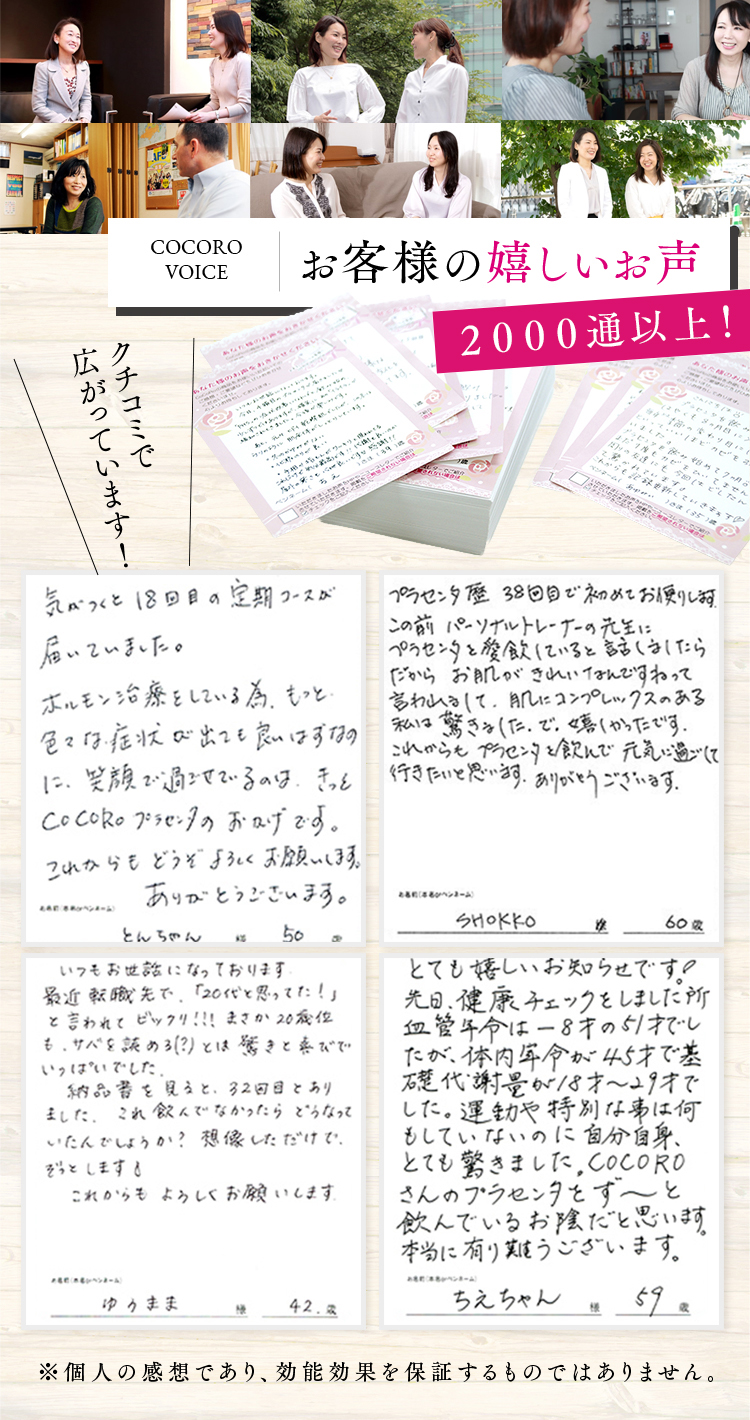 COCORO
VOICE
お客様の嬉しいお声
2000通以上!
クチコミで
広がっています!
気がつくと18回目の定期コースが
届いていました。
ホルモン治療をしている為、もっと
色々な症状が出ても良いはずなの
に、笑顔で過ごせているのは、きっと
COCOROプラセンタのおかげです。
これからもどうぞよろしくお願いします。
ありがとうございます。
お名前(本名orペンネーム)
とんちゃん 様 50 歳
プラセンタ歴 38回目で初めてお便りします。
この前 パーソナルトレーナーの先生に
プラセンタを愛飲していると話しましたら
だから お肌がきれいなんですねって
言われまして、肌にコンプレックスのある
私は驚きました。で、嬉しかったです。
これからも プラセンタを飲んで 元気に過ごして
行きたいと思います。ありがとうございます。
お名前(本名orペンネーム)
SHOKKO 様 60歳
いつもお世話になっております。
最近転職先で、「20代と思ってた!」
と言われて ビックリ!!! まさか20歳位
も、サバを読める(?)とは 驚きと喜びで
いっぱいでした。
納品書を見ると、32回目とあり
ました。これ飲んでなかったら どうなって
いたんでしょうか? 想像しただけで、
ぞっとします!
これからも よろしくお願いします。
お名前(本名orペンネーム)
ゆうまま 様 42.歳
とても嬉しいお知らせです!
先日、健康チェックをしました所
血管年令は−8才の51才でし
たが、体内年令が45才で基
礎代謝量が18才〜29才で
した。運動や特別な事は何
もしていないのに自分自身、
とても驚きました。COCORO
さんのプラセンタをず〜と
飲んでいるお陰だと思います。
本当に有り難うございます。
お名前(本名orペンネーム)
ちえちゃん 様 59 歳
※個人の感想であり、効能効果を保証するものではありません。